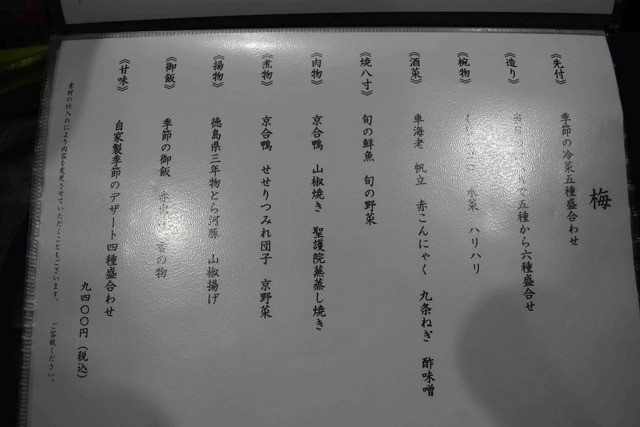 梅
《先付》 季節の冷菜五種盛合わせ
《造り》 五種から六種盛合せ
《椀物》 水菜 ハリハリ
《酒菜》 車海老 帆立 赤こんにゃく 九条ねぎ 酢味噌
《焼八寸》 旬の鮮魚 旬の野菜
《肉物》 京合鴨 山椒焼き 聖護院蕪蒸し焼き
《煮物》 京合鴨 せせりつみれ団子 京野菜
《揚物》 徳島県三年物とら河豚 山椒揚げ
《御飯》 季節の御飯 の物
《甘味》 自家製季節のデザート四種盛合わせ
九四〇〇円（税込）
素材の仕入れにより内容を変更させていただくこともございます。 ご容赦ください。